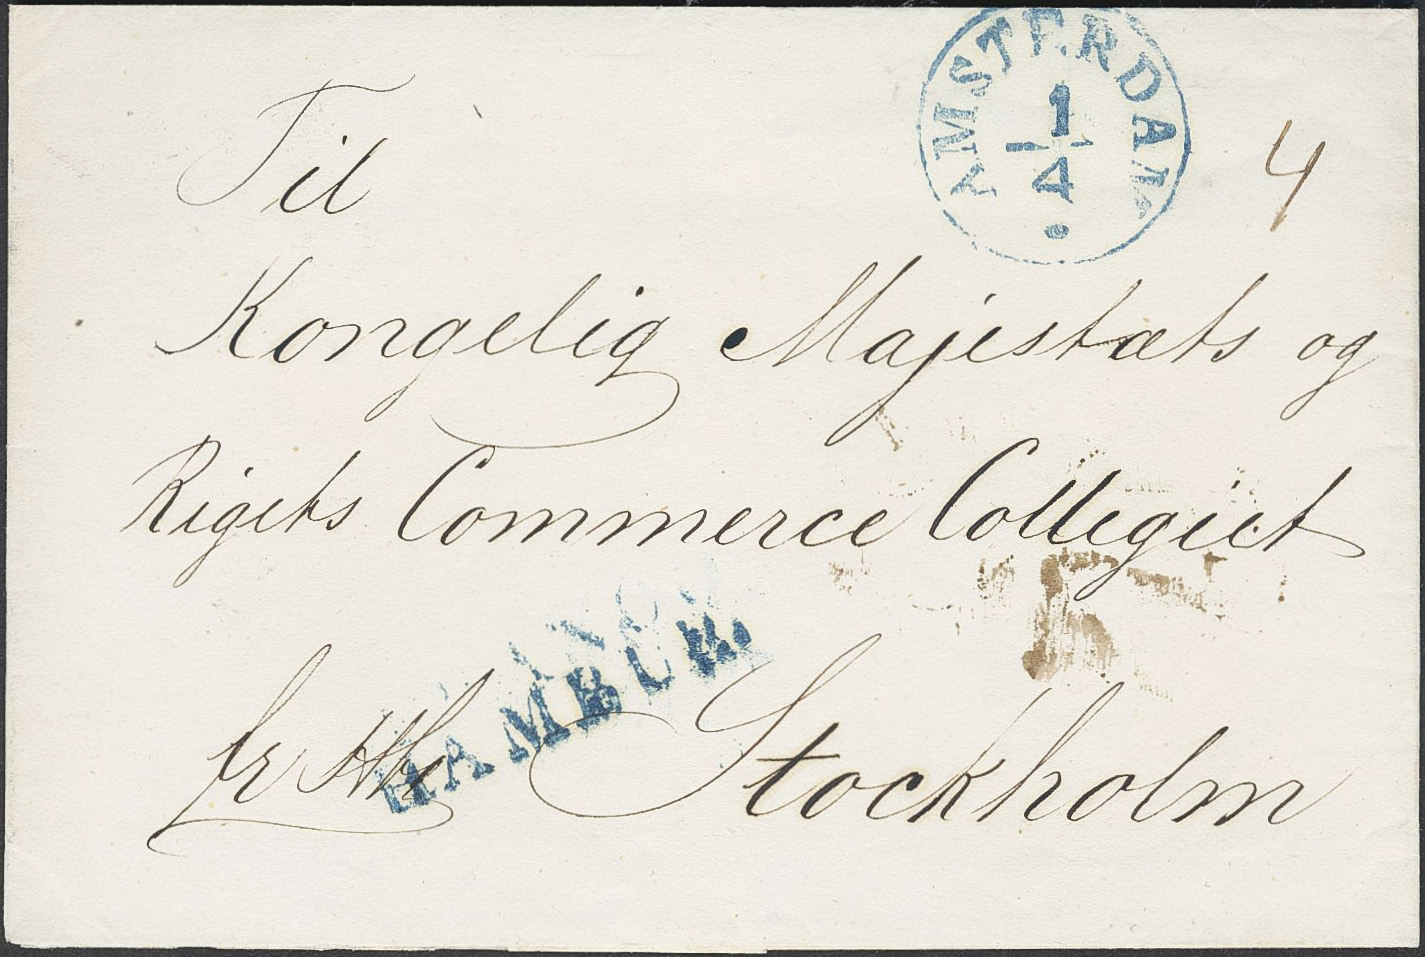 AMSTERDAM
1
4
4
Til
Kongelig Majestæts og
Rigets Commerce Collegiet
HAMBUR.
fr Hbg Stockholm